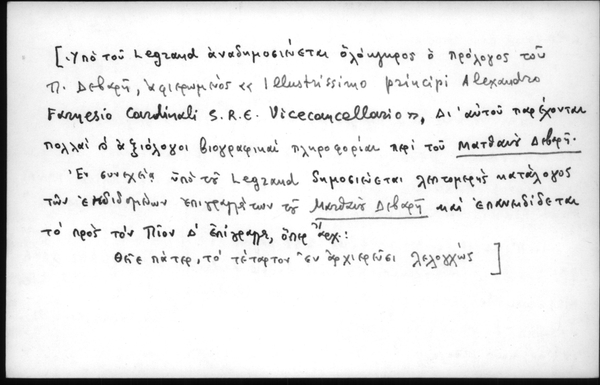 [. Ὑπὸ τοῦ Legrand ἀναδημοσιεύεται ὁλόκληρος ὁ πρόλογος τοῦ
Π. Δεβαρῆ, ἀφιερωμένος «Illustrissimo principi Alexandro
Farnesio Cardinali S.R.E. Vicecancellario», Δι' αὐτοῦ παρέχονται
πολλαὶ ἀξιόλογοι βιογραφικαὶ πληροφορίαι περὶ τοῦ Ματθαίου Δεβαρῆ.
Ἐν συνεχείᾳ ὑπὸ τοῦ Legrand δημοσιεύεται λεπτομερὴς κατάλογος
τῶν ἐκδιδομένων ἐπιγραμμάτων τοῦ Ματθαίου Δεβαρῆ καὶ ἐπανεκδίδεται
τὸ πρὸς τὸν Πῖον Δ' ἐπίγραμμα, ὅπερ ἄρχ.:
Θεῖε πάτερ, τὸ τέταρτον ἐν ἀρχιερεῦσι λελογχὼς ]